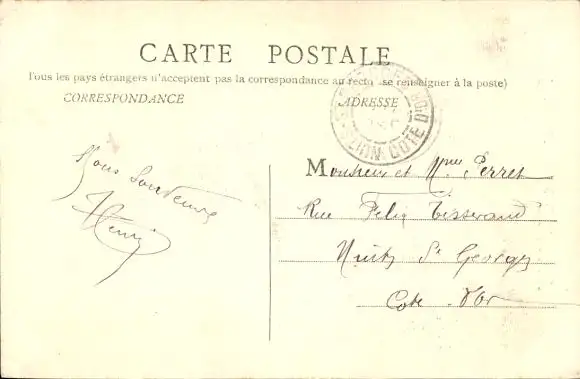 CARTE POSTALE
Tous les pays étrangers n'acceptent pas la correspondance au recto (se renseigner à la poste)
CORRESPONDANCE
ADRESSE
Henri
Monsieur et Mme Perret
Rue Felix Tisserand
Nuits St Georges
Cote d'Or